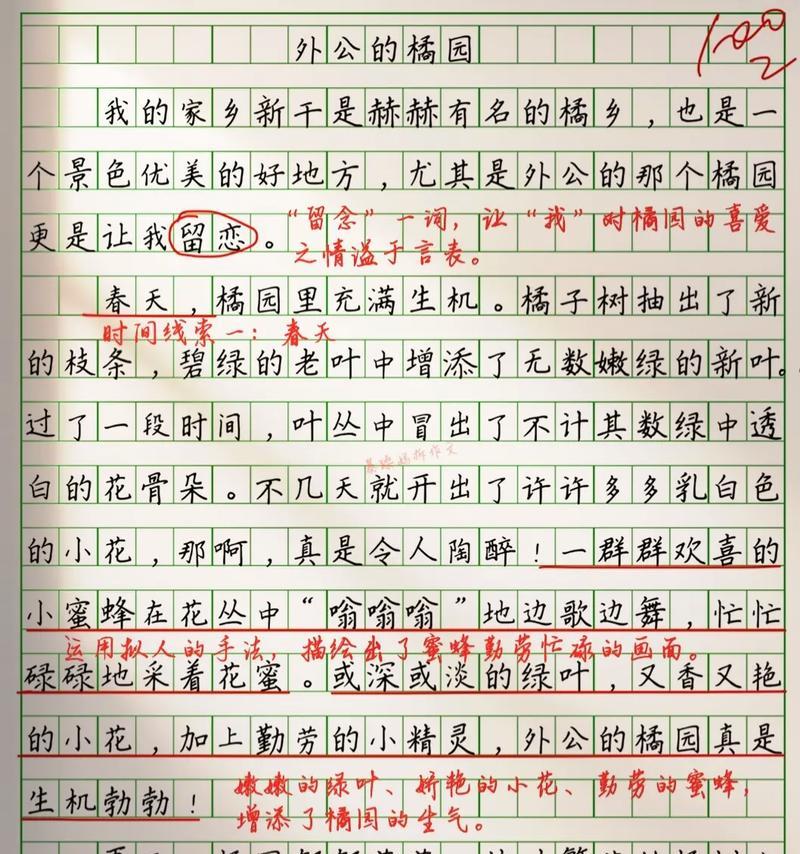 外公的橘园
100
2
我的家乡新干是赫赫有名的橘乡，也是一
个景色优美的好地方，尤其是外公的那个橘园
更是让我留恋。
“留念”一词，让“我”对橘园的喜爱
之情溢于言表。
春天，橘园里充满生机。橘子树抽出了新
时间线索一：春天
的枝条，碧绿的老叶中增添了无数嫩绿的新叶。
过了一段时间，叶丛中冒出了不计其数绿中透
白的花骨朵。不几天就开出了许许多多乳白色
的小花，那啊，真是令人陶醉！一群群欢喜的
小蜜蜂在花丛中“嗡嗡嗡”地边歌边舞，忙忙
运用拟人的手法，描绘出了蜜蜂勤劳忙碌的画面。
碌碌地采着花蜜。或深或淡的绿叶，又香又艳
的小花，加上勤劳的小精灵，外公的橘园真是
生机勃勃！
嫩嫩的绿叶、娇艳的小花、勤劳的蜜蜂，
增添了橘园的生气。